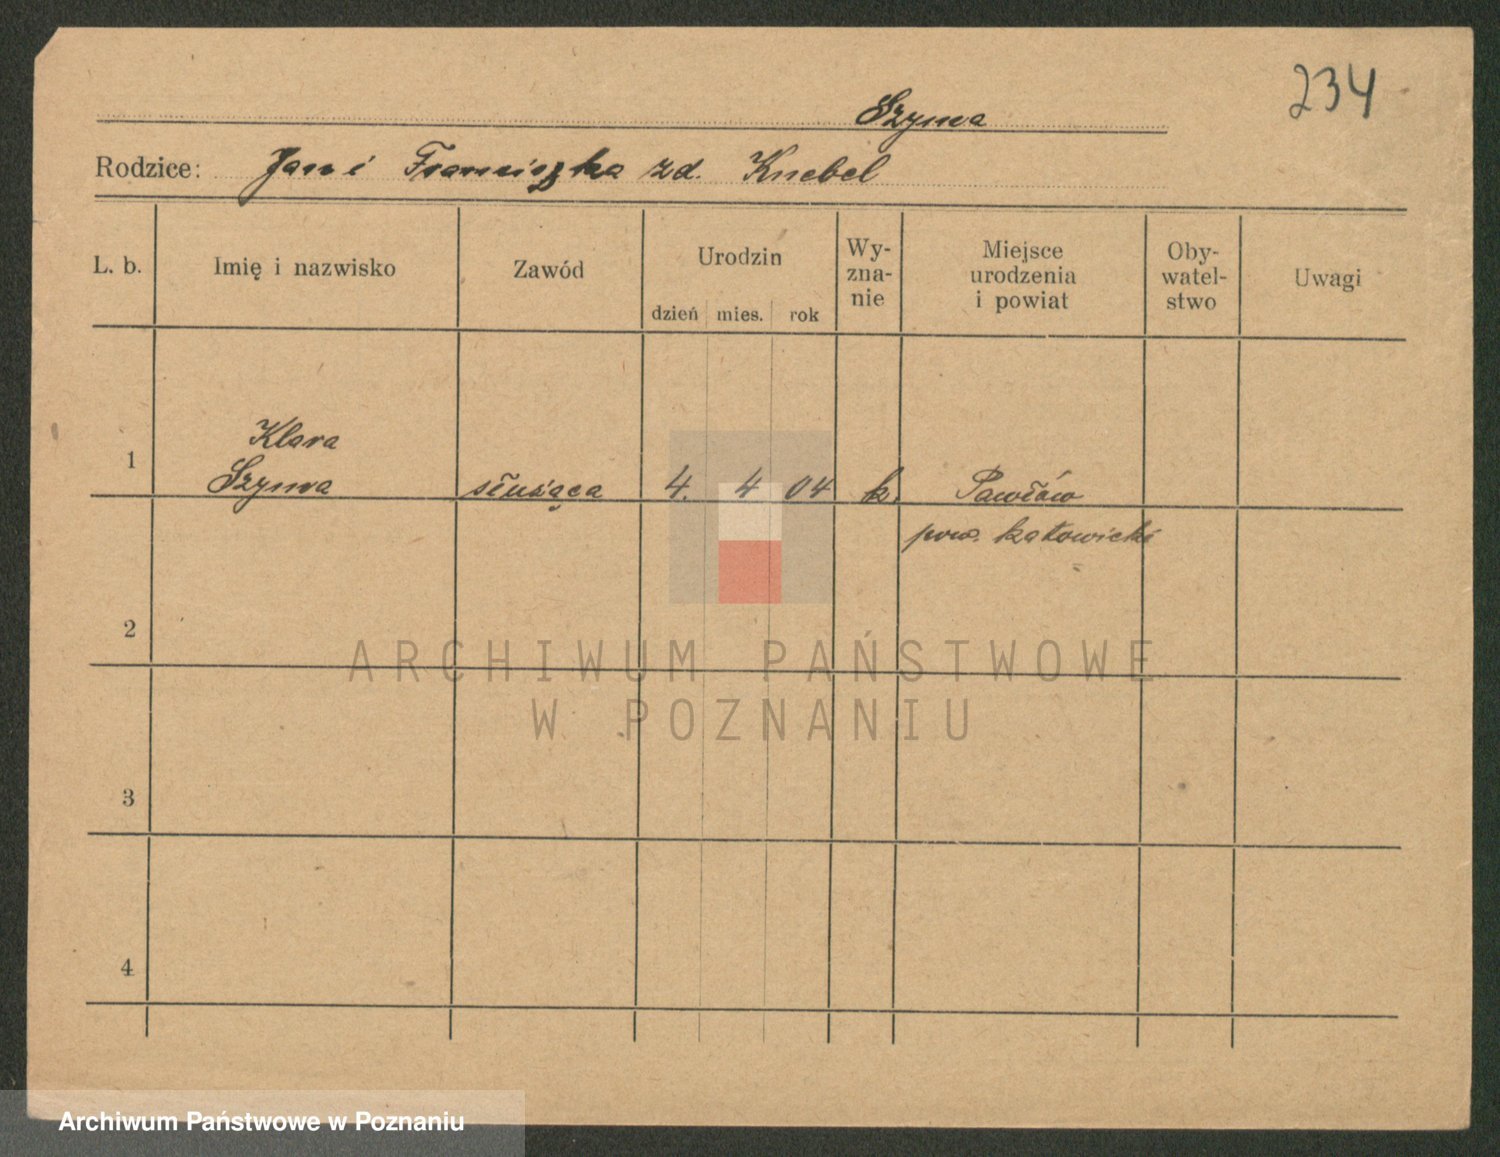 234
Szyma
Rodzice: Jan i Franciszka zd. Knebel
L. b.
Imię i nazwisko
Zawód
Urodzin
dzień mies. rok
Wy-
zna-
nie
Miejsce
urodzenia
i powiat
Oby-
watel-
stwo
Uwagi
Klara
1 Szyma służąca 4. 4 04 k. Pawłów
pow. katowicki
2
ARCHIWUM PAŃSTWOWE
W POZNANIU
3
4
Archiwum Państwowe w Poznaniu